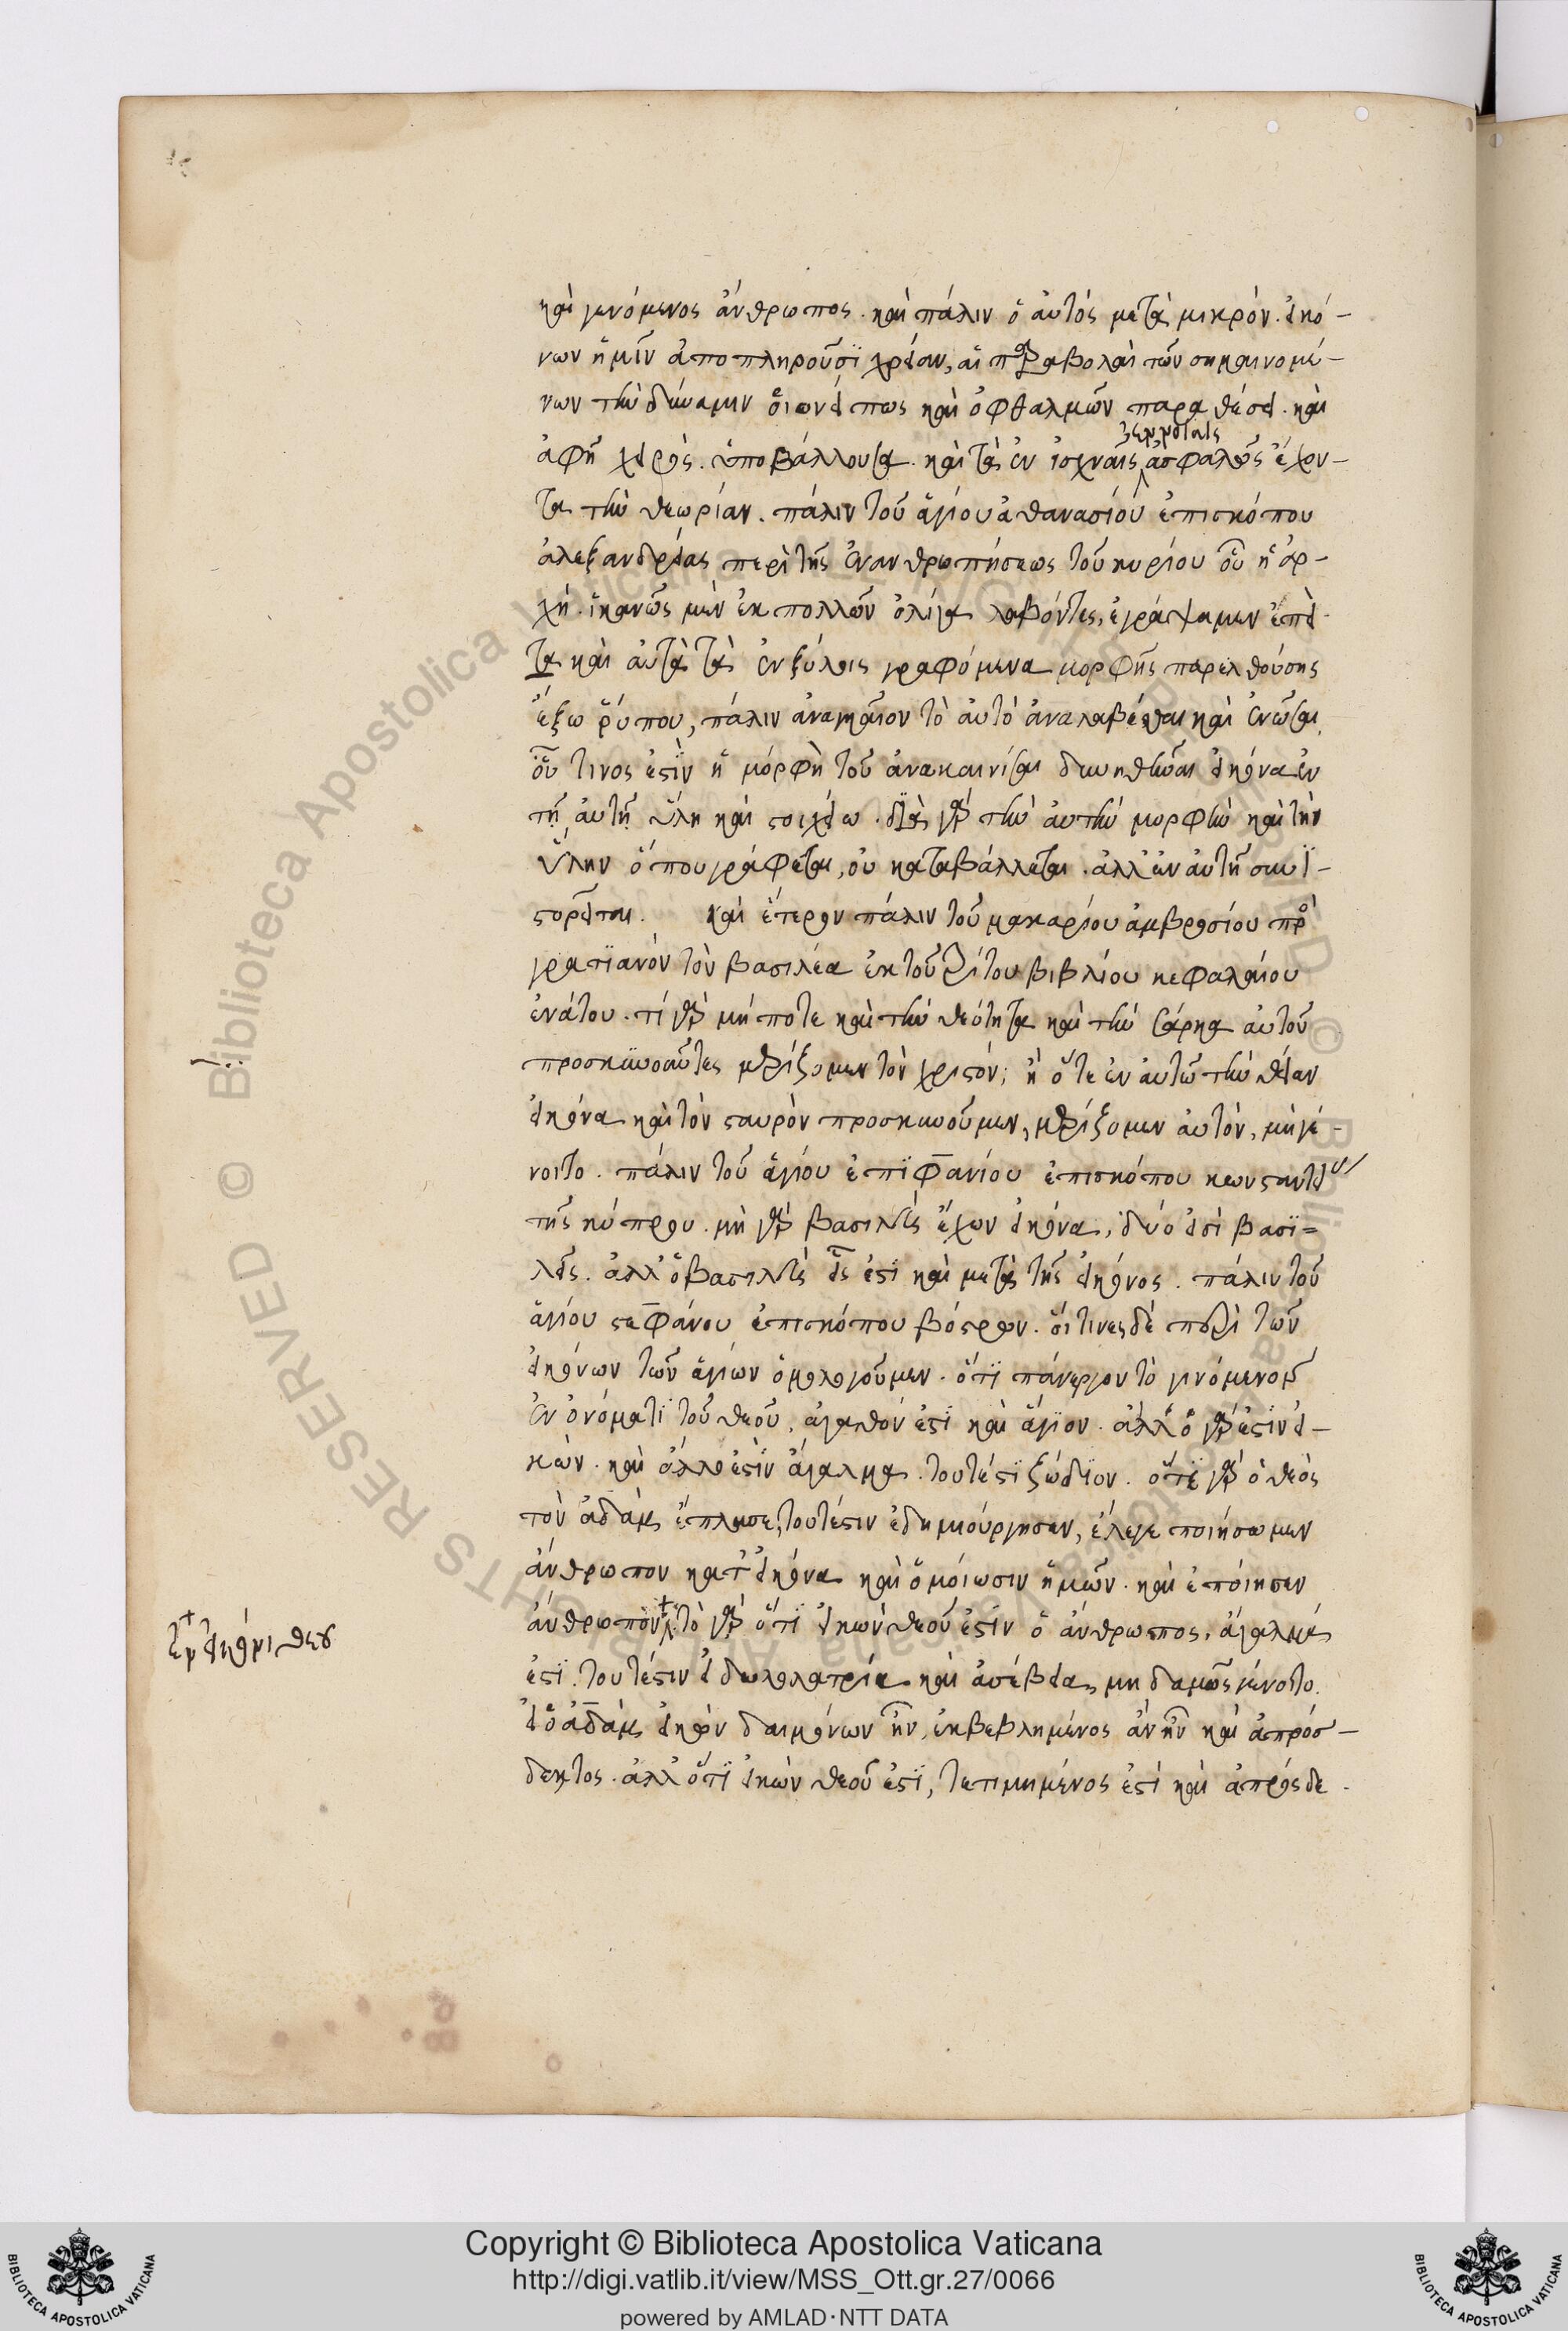 καὶ γενόμενος ἄνθρωπος. καὶ πάλιν ὁ αὐτὸς μετὰ μικρόν. εἰκό-
νων ἡμῖν ἀποπληροῦσϊ χρείαν, αἱ παραβολαὶ τῶν σημαινομέ-
νων τὴν δύναμιν οἱονεί πως καὶ ὀφθαλμῶν παραθέσει. καὶ
ἁφῇ χειρὸς. ὑποβάλλουσαι. καὶ τὰ ἐν ἰσχναῖς ἀσφαλῶς ἔχον-
τα τὴν θεωρίαν. πάλιν τοῦ ἁγίου ἀθανασίου ἐπισκόπου
ἀλεξανδρείας περὶ τῆς ἐνανθρωπήσεως τοῦ κυρίου οὗ ἡ ἀρ-
χή. ἱκανῶς μὲν ἐκ πολλῶν ὀλίγα λαβόντες, ἐγράψαμεν ἐπεὶ
τα καὶ αὐτὰ τὰ ἐν ξύλοις γραφόμενα μορφῆς παρελθούσης
ἔξω ῥύπου, πάλιν ἀναγκαῖον τὸ αὐτὸ ἀναλαβέσθαι καὶ ἑνῶσαι
οὗ τινος ἐστὶν ἡ μόρφὴ τοῦ ἀνακαινίσαι δυνηθῆναι εἰκόνα ἐν
τῇ αὐτῇ ὕλῃ καὶ στοιχείω. διὰ γὰρ τὴν αὐτὴν μορφὴν καὶ τὴν
ὕλην ὅπου γράφεται, οὐ καταβάλλεται. ἀλλ' ἐν αὐτῇ συνϊ-
στορεῖται. καὶ ἕτερον πάλιν τοῦ μακαρίου ἀμβροσίου πρὸ
γρατϊανὸν τὸν βασιλέα ἐκ τοῦ τρίτου βιβλίου κεφαλαίου
ἐνάτου. τί γὰρ μή ποτε καὶ τὴν θεότητα καὶ τὴν σάρκα αὐτοῦ
προσκυνοῦντες μερίζομεν τὸν χριστόν; ἢ ὅτε ἐν αὐτῶ τὴν θείαν
εἰκόνα καὶ τὸν σταυρὸν προσκυνοῦμεν, μερίζομεν αὐτὸν, μὴ γέ-
νοιτο. πάλιν τοῦ ἁγίου ἐπϊφανίου ἐπισκόπου κωνσταντεί
τῆς κύπρου. μὴ γὰρ βασιλεὺς ἔχων εἰκόνα, δύο εἰσὶ βασϊ=
λεῖς. ἀλλ' ὁ βασιλεὺς εἷς ἐστϊ καὶ μετὰ τῆς εἰκόνος. πάλιν τοῦ
ἁγίου στεφάνου ἐπισκόπου βόστρων. οἵτινες δὲ περὶ τῶν
εἰκόνων τῶν ἁγίων ὁμολογοῦμεν. ὅτϊ πάν ἔργον τὸ γινόμενον
ἐν ὀνόματϊ τοῦ θεοῦ, ἀγαθόν ἐστϊ καὶ ἅγϊον. ἀλλ' ὁ γὰρ ἐστὶν εἰ-
κὼν. καὶ ἄλλο ἐστὶν ἄγαλμα. τουτέστϊ ζώδϊον. ὅτε γὰρ ὁ θεὸς
τὸν ἀδὰμ ἔπλασε, τουτέστιν ἐδημιούργησεν, ἔλεγε ποιήσωμεν
ἄνθρωπον κατ' εἰκόνα καὶ ὁμοίωσιν ἡμῶν. καὶ ἐποίησεν
ἄνθρωπον τὸ γὰρ ὅτϊ εἰκὼν θεοῦ ἐστὶν ὁ ἄνθρωπος, ἄγαλμά
ἐν εἰκόνι θεοῦ
ἐστϊ. τουτέστιν εἰδωλολατρία καὶ ἀσέβεια, μηδαμῶς γένοιτο.
εἰ ὁ ἀδὰμ εἰκὼν δαιμόνων ἦν, ἐκβεβλημένος ἂν ἦν καὶ ἀπρόσ-
δεκτος. ἀλλ' ὅτϊ εἰκὼν θεοῦ ἐστϊ, τετιμημένος ἐστί καὶ ἀπρόςδε
Copyright © Biblioteca Apostolica Vaticana
http://digi.vatlib.it/view/MSS_Ott.gr.27/0066
powered by AMLAD·NTT DATA